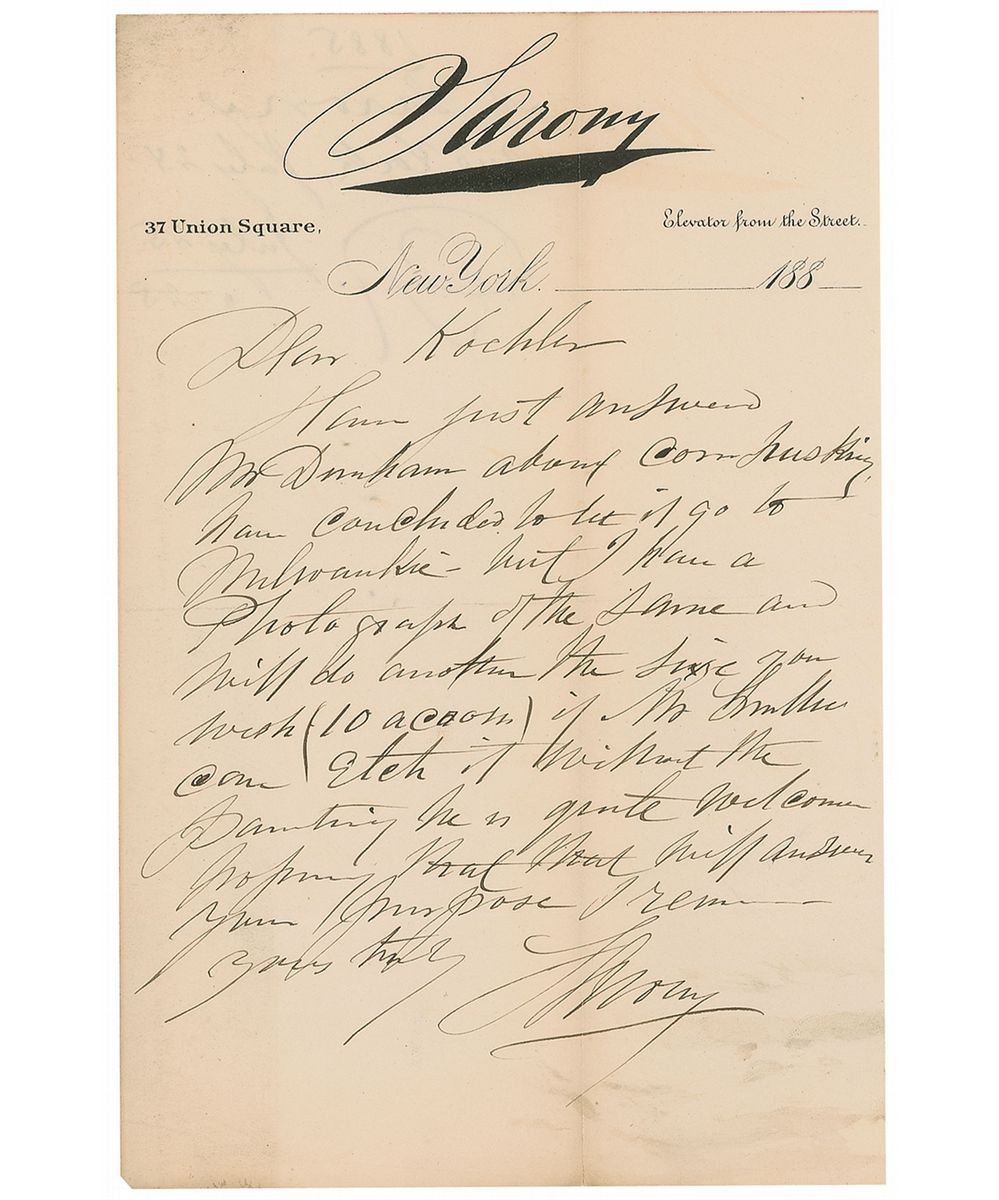 Sarony
37 Union Square,
Elevator from the Street.
New York. 188
Dear Koehler
Have just answered
Mr Dunham about Corn husking
have concluded to let it go to
Milwaukie - but I have a
Photograph of the same and
will do another the size you
wish (10 across) if Mr Smillie
can Etch it without the
painting he is quite welcome
hoping that that will answer
your purpose I remain
yours truly Sarony